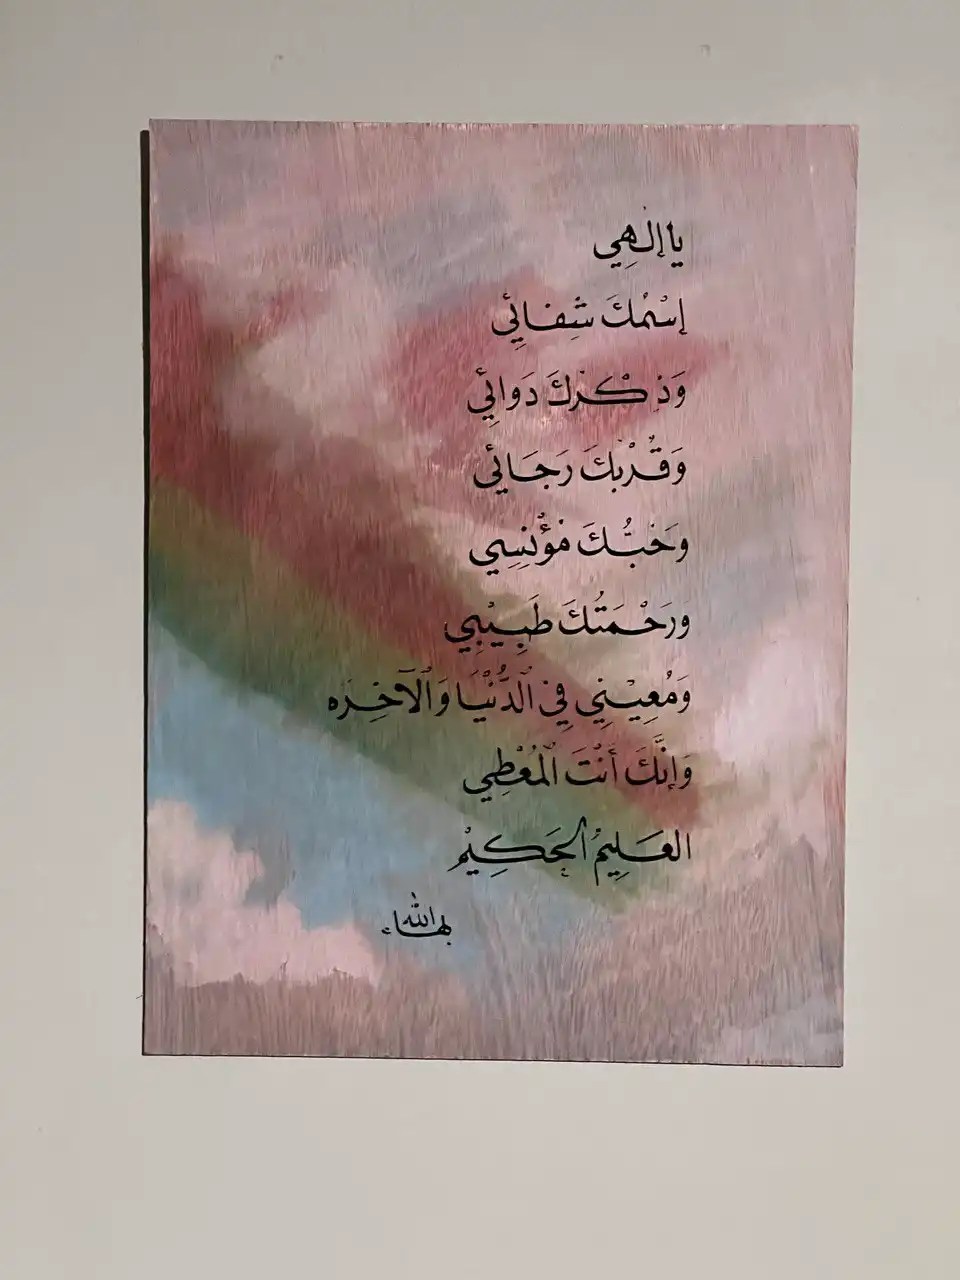 يا إلهِي
إسْمُكَ شِفائِي
وَذِكْرُكَ دَوائِي
وَقُرْبُكَ رَجَائِي
وَحُبُّكَ مُؤْنِسِي
وَرَحْمَتُكَ طَبِيْبِي
وَمُعِيْنِي فِي الدُّنْيَا وَالآخِرَه
وَإنَّكَ أَنْتَ الْمُعْطِي
العَلِيمُ الحَكِيْمْ
بهاءالله